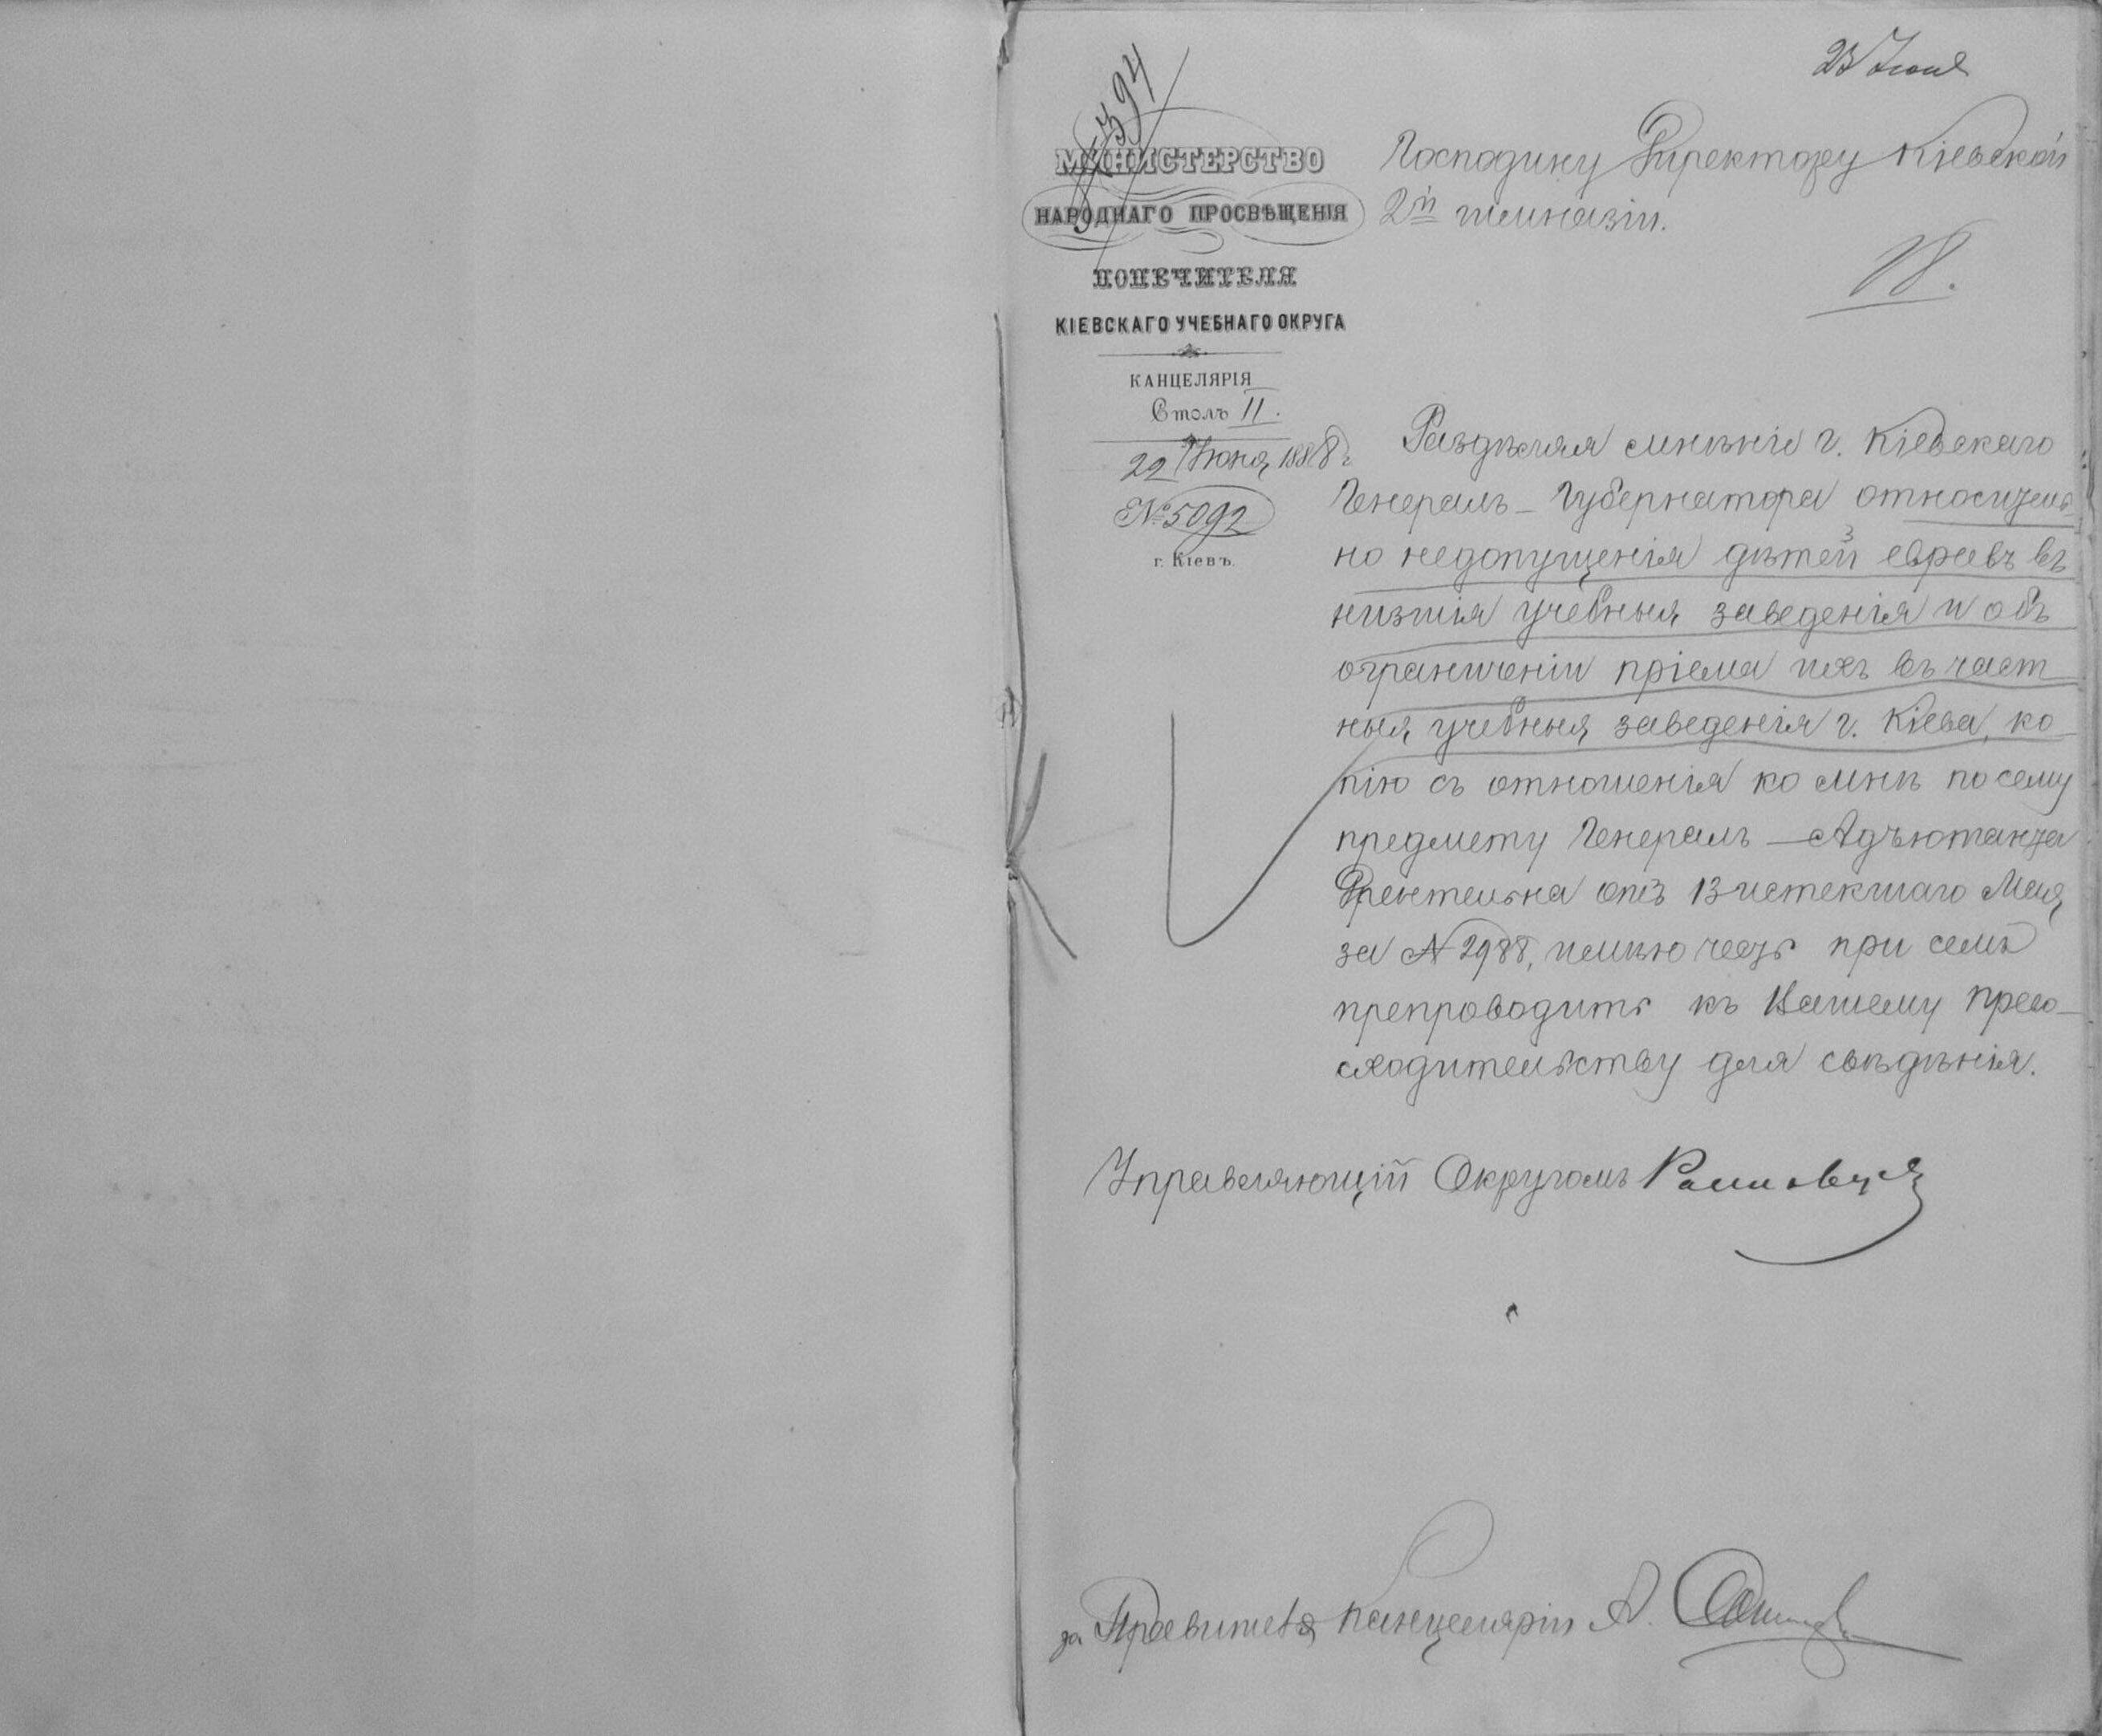 23 Іюня
394
МИНИСТЕРСТВО
НАРОДНАГО ПРОСВѢЩЕНІЯ
ПОПЕЧИТЕЛЯ
КІЕВСКАГО УЧЕБНАГО ОКРУГА
КАНЦЕЛЯРІЯ
Столъ II.
22 Іюня 1888 г.
№ 5092
г. Кіевъ.
Господину Директору Кіевской
2й гимназіи.
18.
Раздѣляя мнѣніе г. Кіевскаго
Генералъ-Губернатора относитель
но недопущенія дѣтей евреевъ въ
низшія учебныя заведенія и объ
ограниченіи пріема ихъ въ част
ныя учебныя заведенія г. Кіева, ко
пію съ отношенія ко мнѣ по сему
предмету Генералъ-Адъютанта
Дрентельна отъ 13 истекшаго Мая,
за № 2988, имѣю честь при семъ
препроводить къ Вашему Прево-
сходительству для свѣдѣнія.
Управляющій Округомъ
за Правителя Канцеляріи А.